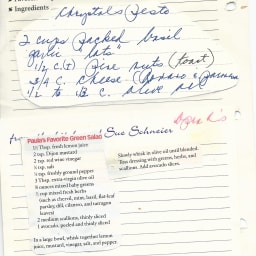 Ingredients Chrystals Pesto
2 cups packed basil
garlic "lots"
1/2 C. (+) pine nuts (toast)
3/4 C. cheese (
1/2 to C. olive oil
Sue Schneier
Paula's Favorite Green Salad
1½ Tbsp. fresh lemon juice
2 tsp. Dijon mustard
2 tsp. red wine vinegar
½ tsp. salt
¼ tsp. freshly ground pepper
3 Tbsp. extra-virgin olive oil
8 ounces mixed baby greens
½ cup mixed fresh herbs
(such as chervil, mint, basil, flat-leaf
parsley, dill, cilantro, and tarragon
leaves)
2 medium scallions, thinly sliced
1 avocado, peeled and thinly sliced
In a large bowl, whisk together lemon
juice, mustard, vinegar, salt, and pepper.
Slowly whisk in olive oil until blended.
Toss dressing with greens, herbs, and
scallions. Add avocado slices.